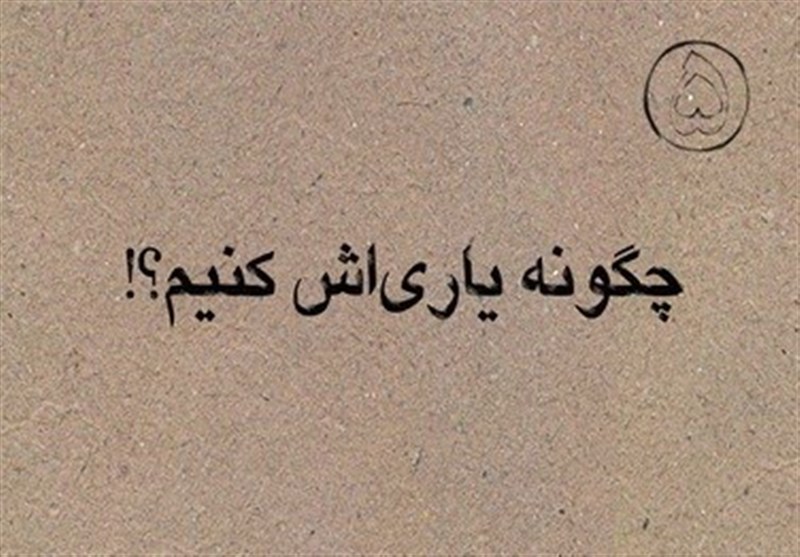 ۵
چگونه یاری‌اش کنیم؟!